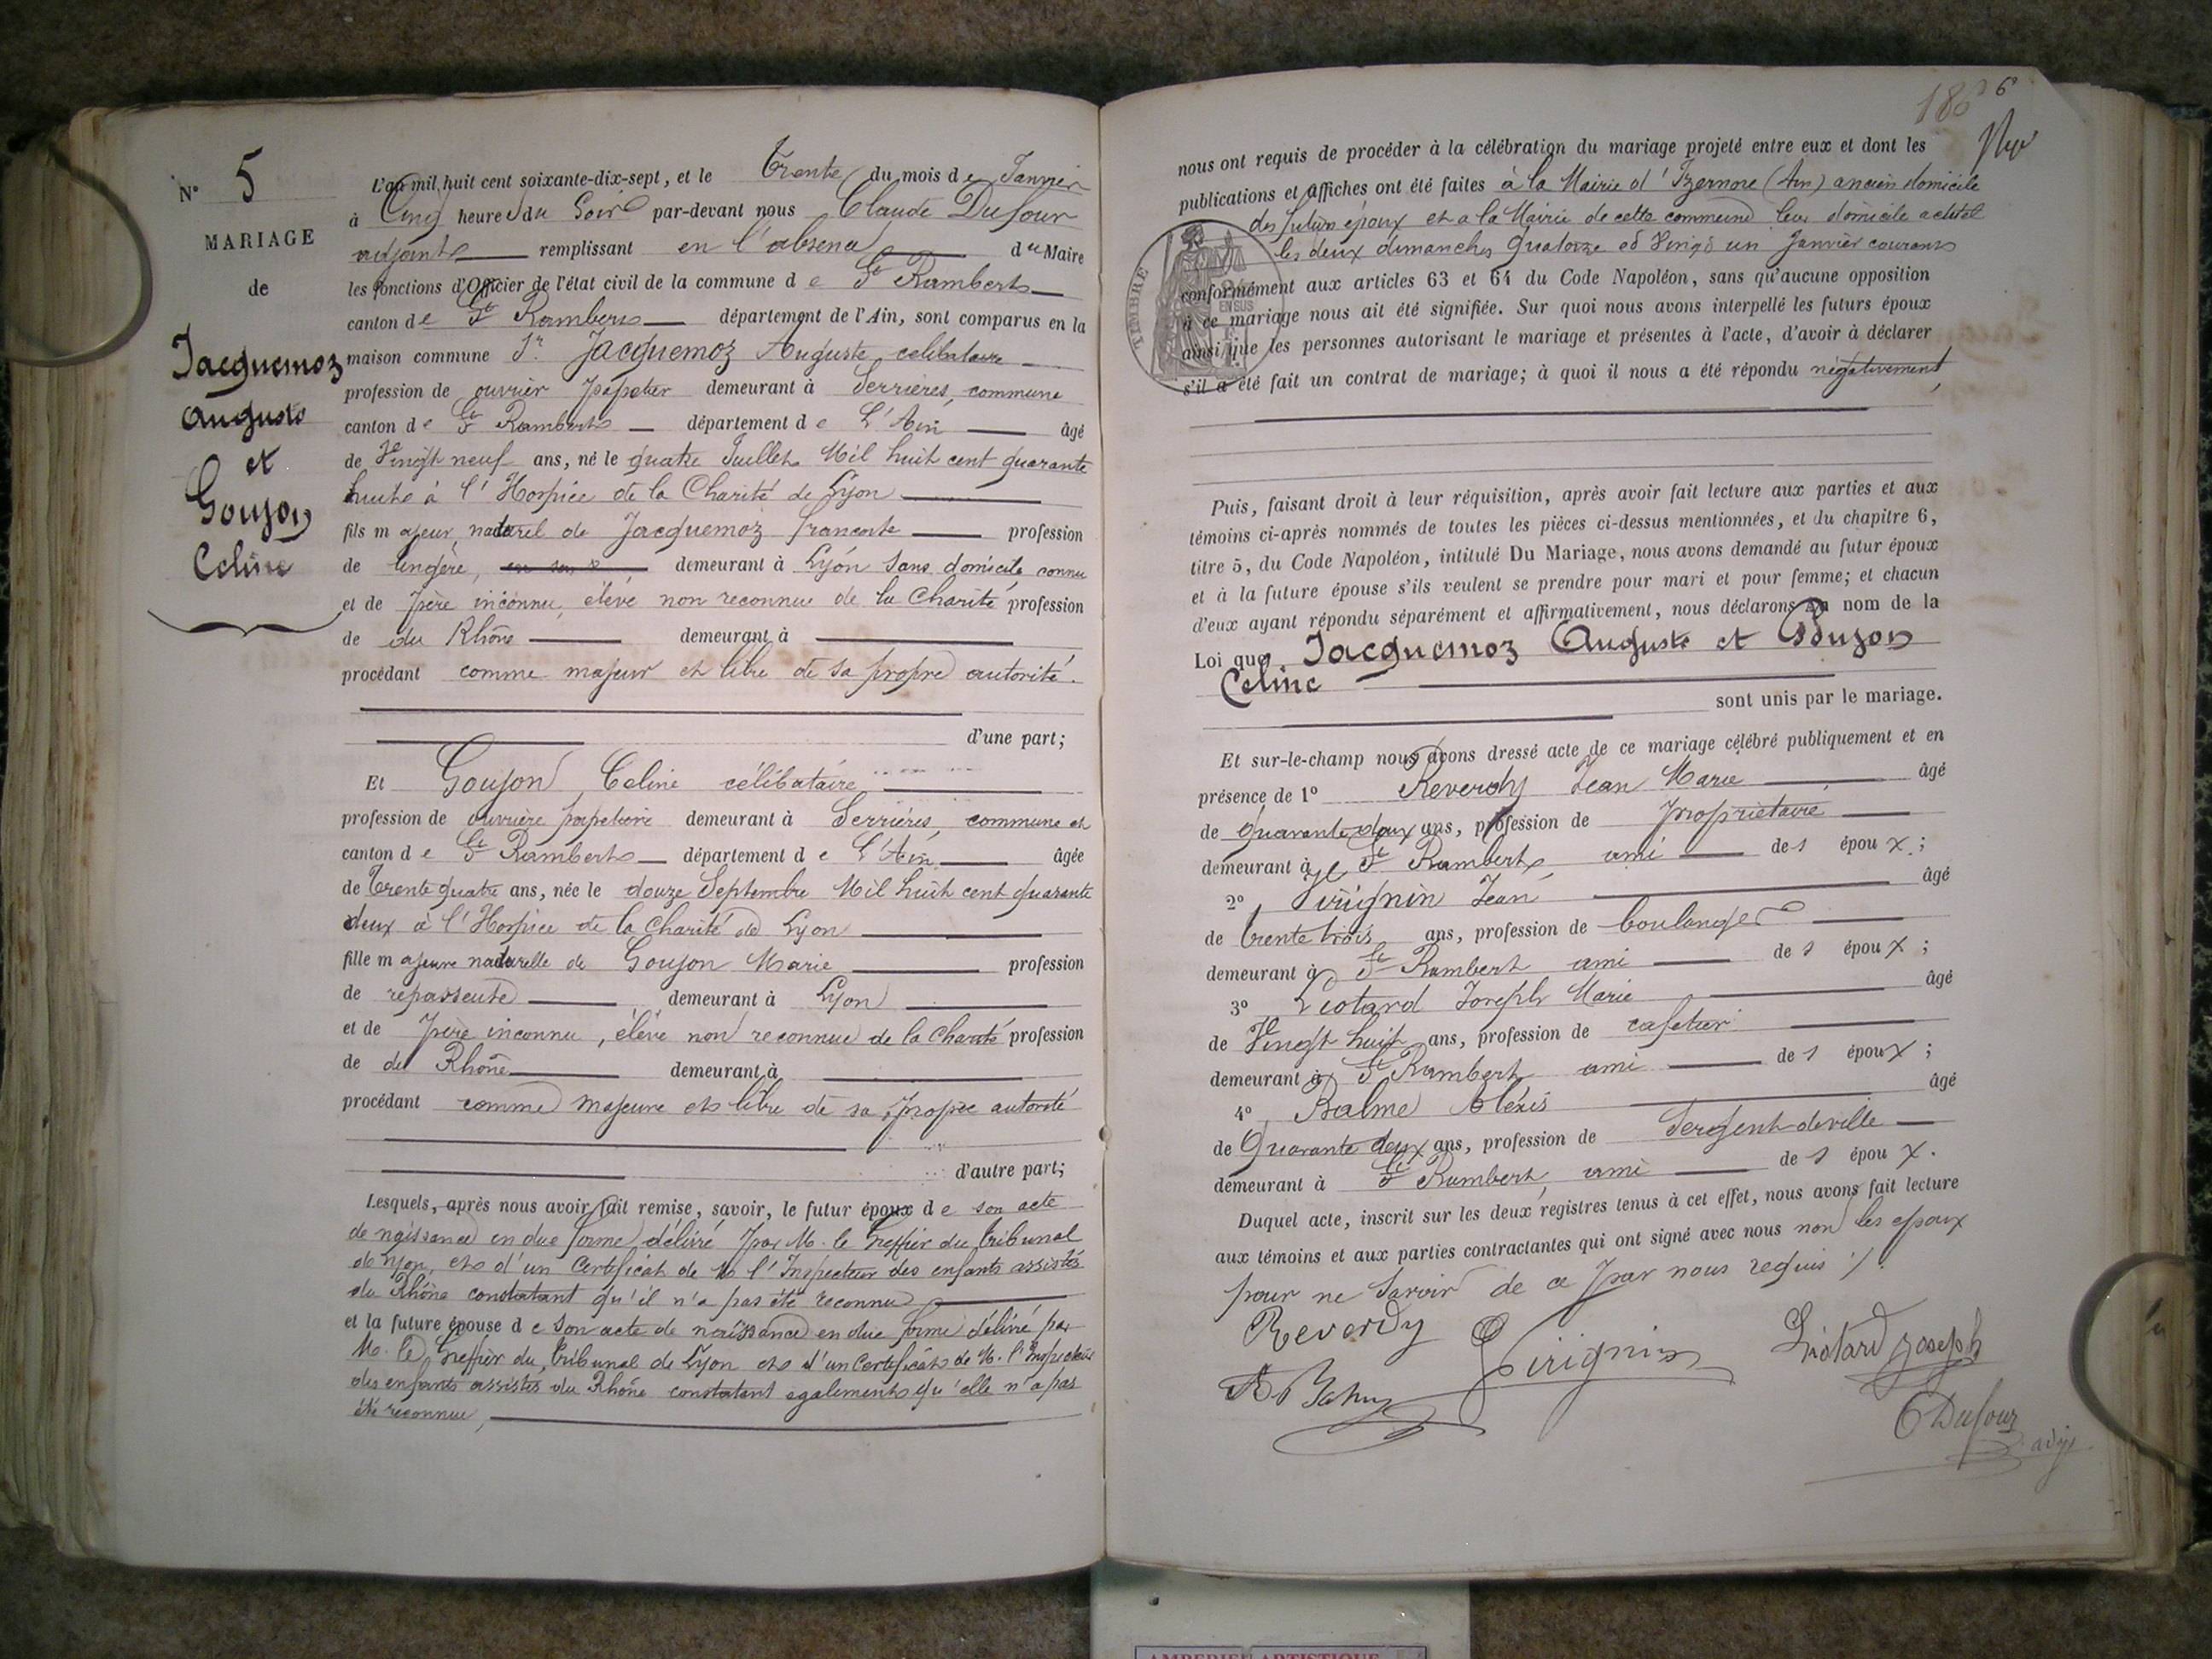 N° 5
MARIAGE
de
Jacquemoz
Auguste
et
Goujon
Celine
L'an mil huit cent soixante-dix-sept, et le Trente du mois de Janvier
à Cinq heures du Soir par-devant nous Claude Dufour
adjoint remplissant en l'absence du Maire
les fonctions d'Officier de l'état civil de la commune de St Rambert
canton de St Rambert département de l'Ain, sont comparus en la
maison commune Sr Jacquemoz Auguste, celibataire
profession de ouvrier papetier demeurant à Serrières, commune
canton de St Rambert département de L'Ain âgé
de Vingt neuf ans, né le quatre Juillet Mil huit cent quarante
huit à l'Hospice de la Charité de Lyon
fils majeur naturel de Jacquemoz francoite profession
de lingère, demeurant à Lyon Sans domicile connu
et de père inconnu, élevé non reconnu de la Charité profession
de du Rhône demeurant à
procédant comme majeur et libre de sa propre autorité.
d'une part;
Et Goujon Celine célibataire
profession de ouvrière papetière demeurant à Serrières, commune et
canton de St Rambert département de L'Ain âgée
de Trente quatre ans, née le douze Septembre Mil huit cent quarante
deux à l'Hospice de la Charité de Lyon
fille majeure naturelle de Goujon Marie profession
de repasseuse demeurant à Lyon
et de père inconnu, élève non reconnue de la Charité profession
de du Rhône demeurant à
procédant comme majeure et libre de sa propre autorité
d'autre part;
Lesquels, après nous avoir fait remise, savoir, le futur époux de son acte
de naissance en due forme délivré par M. le Greffier du tribunal
de Lyon, et d'un Certificat de M l'Inspecteur des enfants assistés
du Rhône constatant qu'il n'a pas été reconnu
et la future épouse de son acte de naissance en due forme délivré par
M. le Greffier du tribunal de Lyon et d'un Certificat de M. l'Inspecteur
des enfants assistés du Rhône constatant egalement qu'elle n'a pas
été reconnue,
186 6
nous ont requis de procéder à la célébration du mariage projeté entre eux et dont les
publications et affiches ont été faites à la Mairie d'Izernore (Ain) ancien domicile
des futurs époux et a la Mairie de cette commune leur domicile actuel
les deux dimanches Quatorze et Vingt un Janvier courant
conformément aux articles 63 et 64 du Code Napoléon, sans qu'aucune opposition
à ce mariage nous ait été signifiée. Sur quoi nous avons interpellé les futurs époux
ainsi que les personnes autorisant le mariage et présentes à l'acte, d'avoir à déclarer
s'il a été fait un contrat de mariage; à quoi il nous a été répondu négativement,
TIMBRE
EN SUS
Puis, faisant droit à leur réquisition, après avoir fait lecture aux parties et aux
témoins ci-après nommés de toutes les pièces ci-dessus mentionnées, et du chapitre 6,
titre 5, du Code Napoléon, intitulé Du Mariage, nous avons demandé au futur époux
et à la future épouse s'ils veulent se prendre pour mari et pour femme; et chacun
d'eux ayant répondu séparément et affirmativement, nous déclarons au nom de la
Loi que Jacquemoz Auguste et Goujon
Celine
sont unis par le mariage.
Et sur-le-champ nous avons dressé acte de ce mariage célébré publiquement et en
présence de 1° Reverdy Jean Marie âgé
de quarante deux ans, profession de propriétaire
demeurant à St Rambert, ami des époux;
2° Jean âgé
de trente trois ans, profession de boulanger
demeurant à St Rambert ami des époux;
3° Liotard Joseph Marie âgé
de Vingt huit ans, profession de cafetier
demeurant à St Rambert ami des époux;
4° Balme Aléxis âgé
de Quarante deux ans, profession de Sergent de ville
demeurant à St Rambert, ami des époux.
Duquel acte, inscrit sur les deux registres tenus à cet effet, nous avons fait lecture
aux témoins et aux parties contractantes qui ont signé avec nous non les epoux
pour ne Savoir de ce par nous requis
Reverdy Liotard Joseph
C Dufour
adjt
AMBERIEU ARTISTIQUE